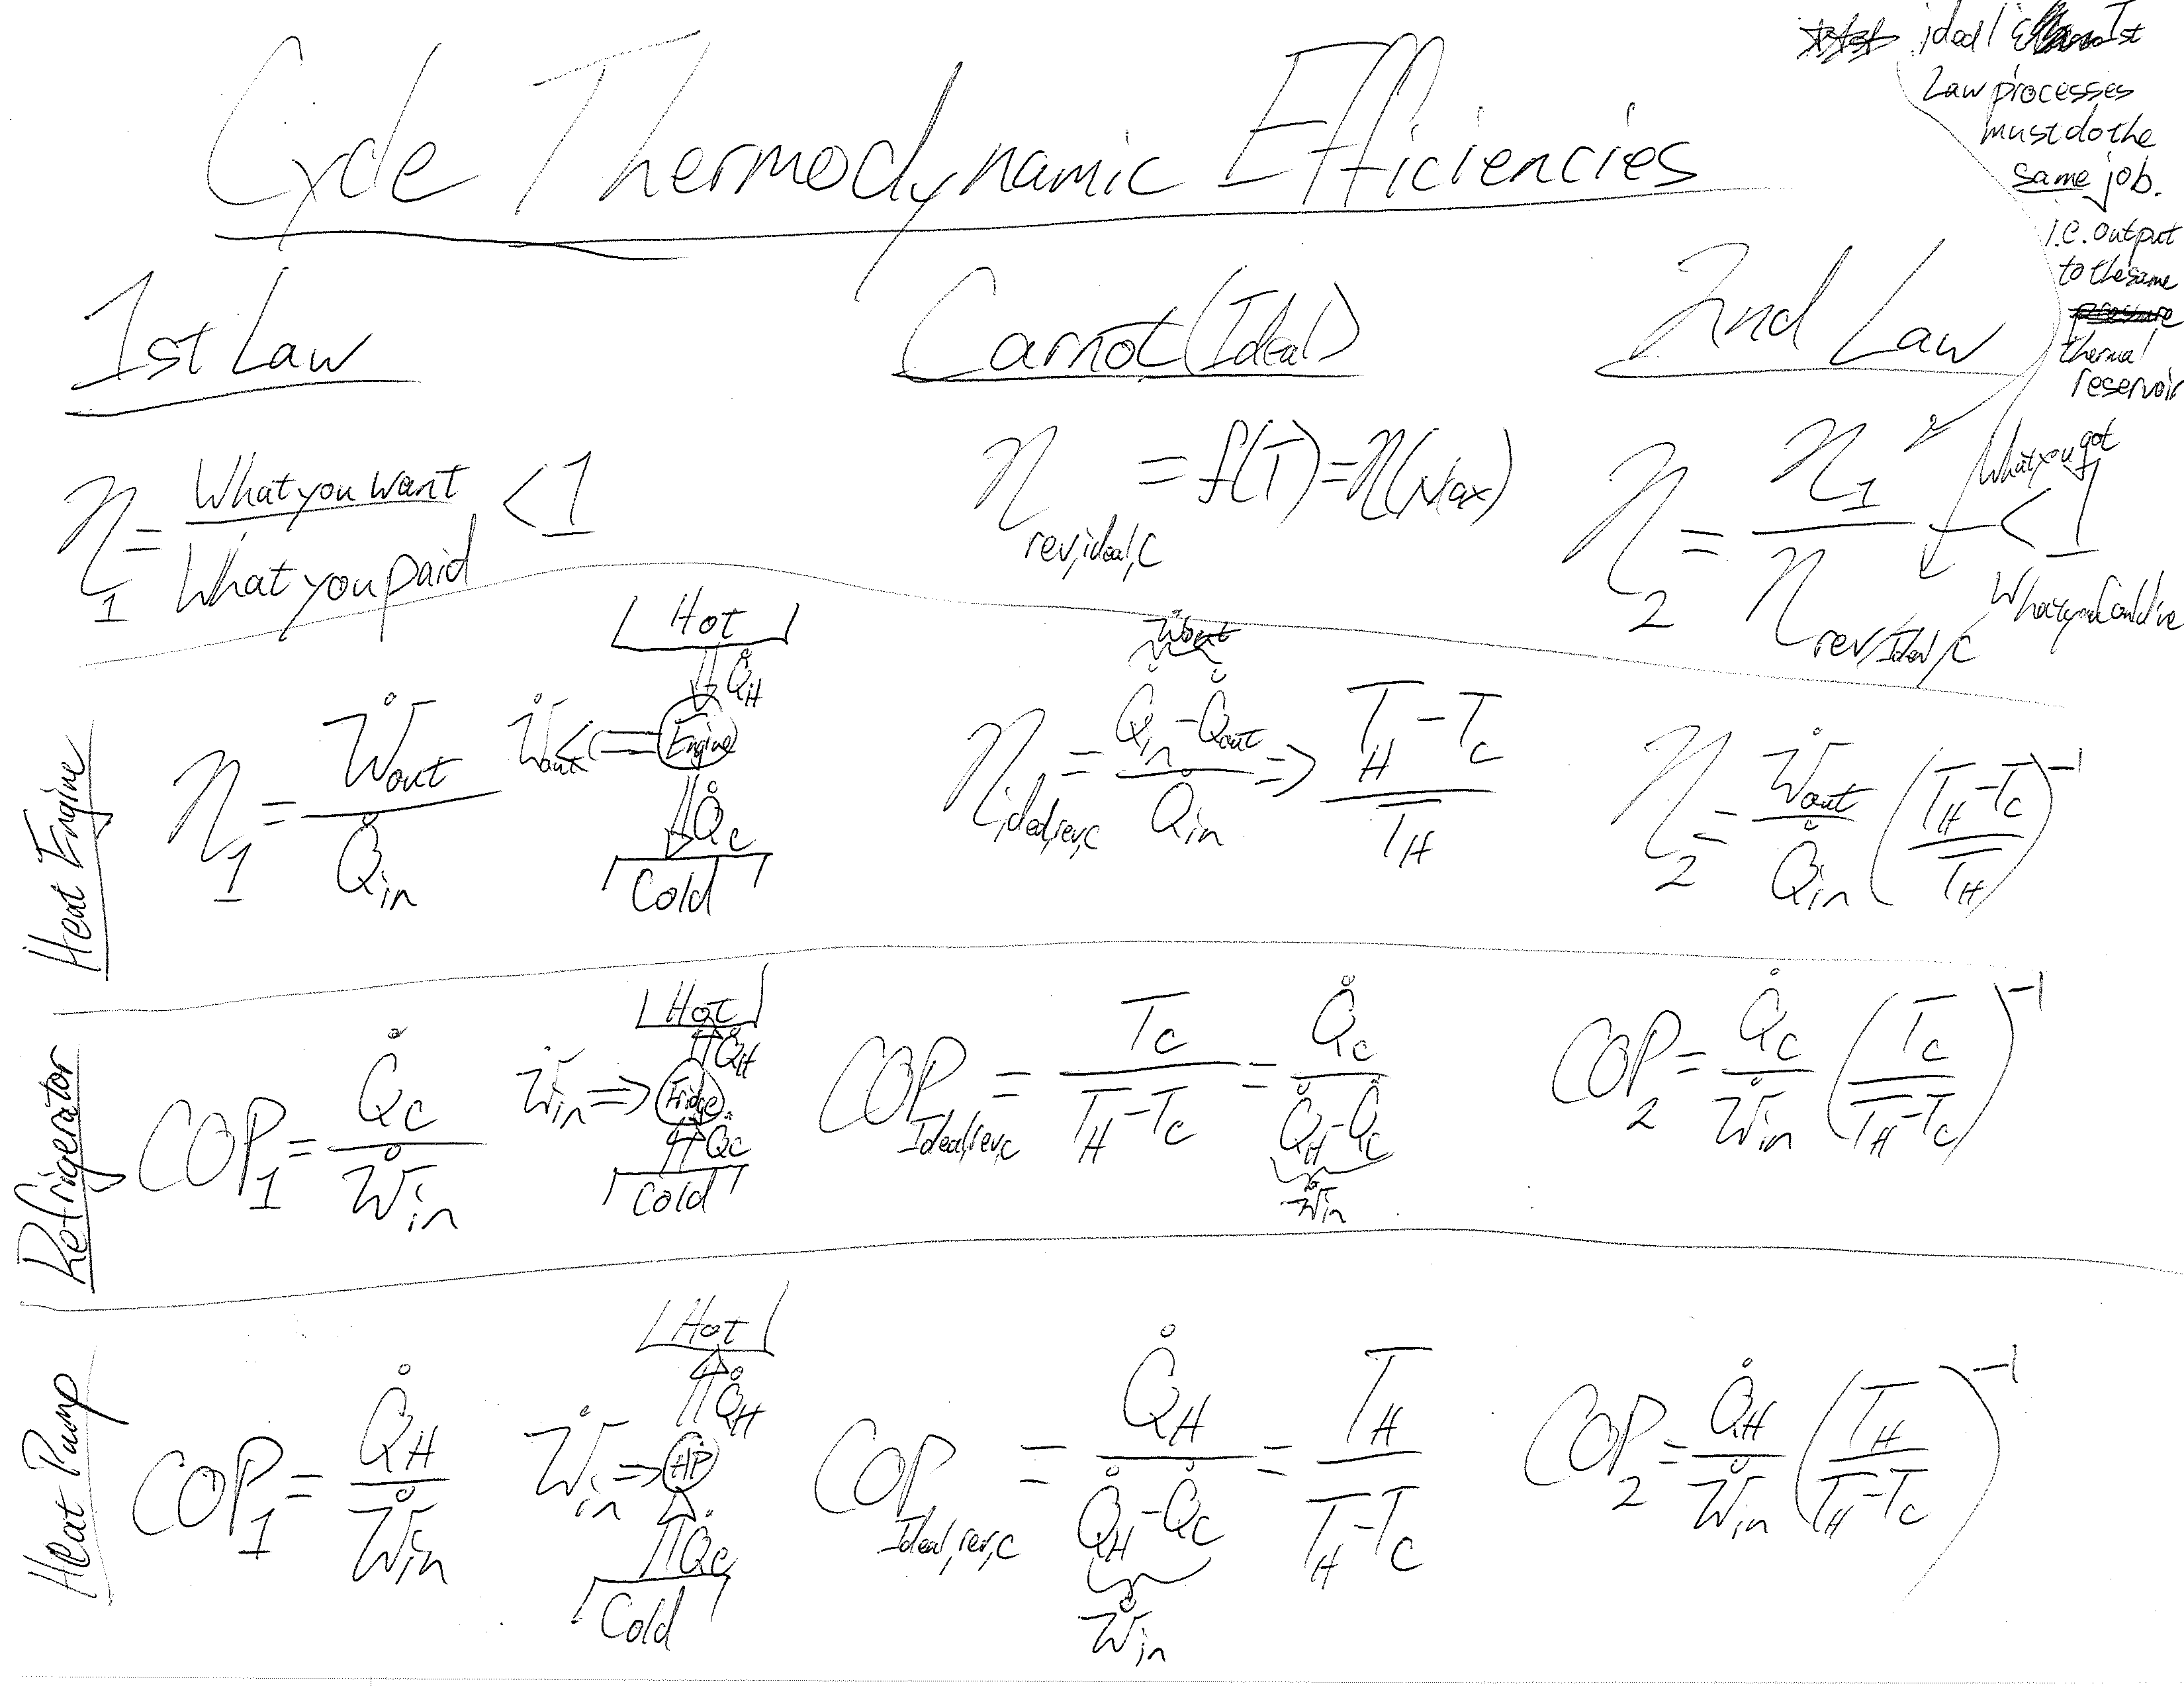 Cycle Thermodynamic Efficiencies
ideal & 1st
Law processes
must do the
same job.
i.e. output
to the same
thermal
reservoir
1st Law
Carnot (Ideal)
2nd Law
η₁ = What you want / What you paid < 1
η rev,ideal,C = f(T) = η(Max)
η₂ = η₁ / η rev/Ideal/C < 1
What you got
What you Could've
Heat Engine
η₁ = Ẇout / Q̇in
Hot
Q̇H
Ẇout
Engine
Q̇c
Cold
Ẇout
η ideal,rev,C = (Q̇in - Q̇out) / Q̇in ⇒ (TH - Tc) / TH
η₂ = Ẇout / Q̇in ((TH - Tc) / TH)⁻¹
Refrigerator
COP₁ = Q̇c / Ẇin
Hot
Q̇H
Ẇin ⇒ Fridge
Q̇c
Cold
COP Ideal,rev,C = Tc / (TH - Tc) = Q̇c / (Q̇H - Q̇c)
Ẇin
COP₂ = Q̇c / Ẇin (Tc / (TH - Tc))⁻¹
Heat Pump
COP₁ = Q̇H / Ẇin
Hot
Q̇H
Ẇin ⇒ HP
Q̇c
Cold
COP Ideal,rev,C = Q̇H / (Q̇H - Q̇c) = TH / (TH - Tc)
Ẇin
COP₂ = Q̇H / Ẇin (TH / (TH - Tc))⁻¹